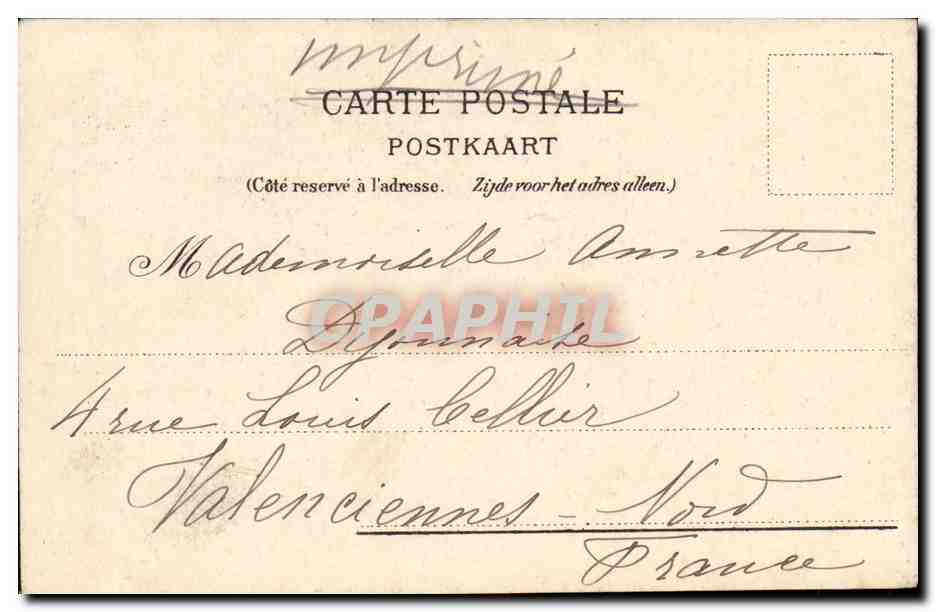 imprimé
CARTE POSTALE
POSTKAART
(Côté reservé à l'adresse. Zijde voor het adres alleen.)
Mademoiselle Annette
CPAPHIL
Dyonnaise
4 rue Louis Cellier
Valenciennes - Nord
France